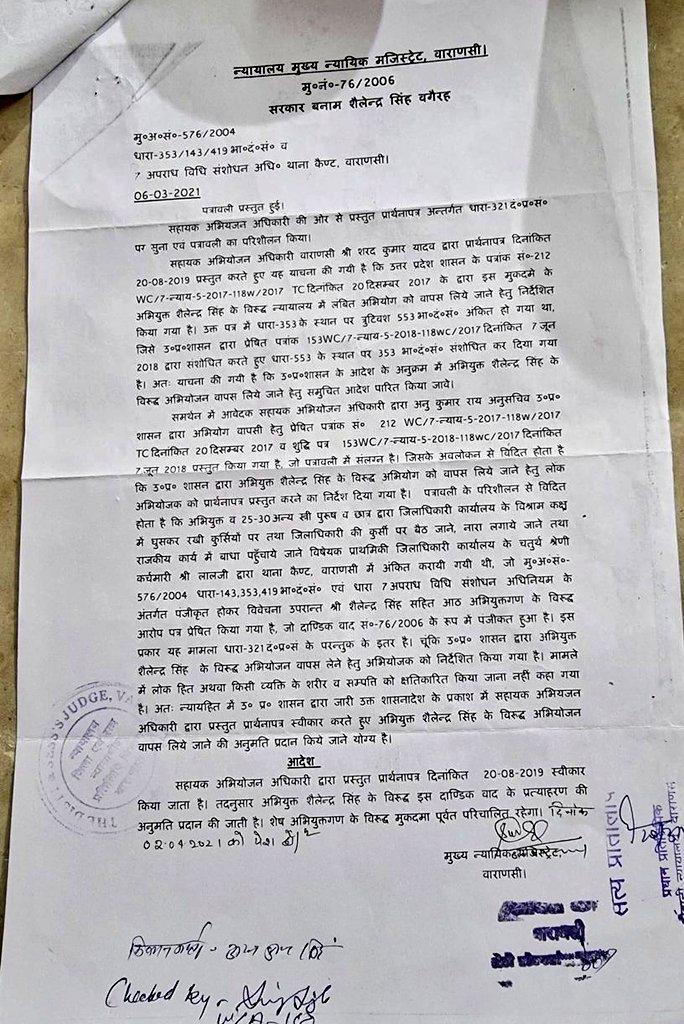 न्यायालय मुख्य न्यायिक मजिस्ट्रेट, वाराणसी।
मु०नं०-76/2006
सरकार बनाम शैलेन्द्र सिंह वगैरह
मु०अ०सं०-576/2004
धारा-353/143/419 भा०दं०सं० व
7 अपराध विधि संशोधन अधि० थाना कैण्ट, वाराणसी।
06-03-2021
पत्रावली प्रस्तुत हुई।
सहायक अभियजन अधिकारी की ओर से प्रस्तुत प्रार्थनापत्र अन्तर्गत धारा-321 दं०प्र०स०
पर सुना एवं पत्रावली का परिशीलन किया।
सहायक अभियोजन अधिकारी वाराणसी श्री शरद कुमार यादव द्वारा प्रार्थनापत्र दिनांकित
20-08-2019 प्रस्तुत करते हुए यह याचना की गयी है कि उत्तर प्रदेश शासन के पत्रांक सं०-212
WC/7-न्याय-5-2017-118w/2017 TC दिनांकित 20 दिसम्बर 2017 के द्वारा इस मुकदमे के
अभियुक्त शैलेन्द्र सिंह के विरूद्ध न्यायालय में लंबित अभियोग को वापस लिये जाने हेतु निर्देशित
किया गया है। उक्त पत्र में धारा-353 के स्थान पर त्रुटिवश 553 भा०दं०सं० अंकित हो गया था,
जिसे उ०प्र०शासन द्वारा प्रेषित पत्रांक 153WC/7-न्याय-5-2018-118wc/2017 दिनांकित 7 जून
2018 द्वारा संशोधित करते हुए धारा-553 के स्थान पर 353 भा०दं०सं० संशोधित कर दिया गया
है। अतः याचना की गयी है कि उ०प्र०शासन के आदेश के अनुक्रम में अभियुक्त शैलेन्द्र सिंह के
विरूद्ध अभियोजन वापस लिये जाने हेतु समुचित आदेश पारित किया जावे।
समर्थन में आवेदक सहायक अभियोजन अधिकारी द्वारा अनु कुमार राय अनुसचिव उ०प्र०
शासन द्वारा अभियोग वापसी हेतु प्रेषित पत्रांक सं० 212 WC/7-न्याय-5-2017-118w/2017
TC दिनांकित 20 दिसम्बर 2017 व शुद्धि पत्र 153WC/7-न्याय-5-2018-118wc/2017 दिनांकित
7 जून 2018 प्रस्तुत किया गया है, जो पत्रावली में संलग्न है। जिसके अवलोकन से विदित होता है
कि उ०प्र० शासन द्वारा अभियुक्त शैलेन्द्र सिंह के विरूद्ध अभियोग को वापस लिये जाने हेतु लोक
अभियोजक को प्रार्थनापत्र प्रस्तुत करने का निर्देश दिया गया है। पत्रावली के परिशीलन से विदित
होता है कि अभियुक्त व 25-30 अन्य स्त्री पुरूष व छात्र द्वारा जिलाधिकारी कार्यालय के विश्राम कक्ष
में घुसकर रखी कुर्सियों पर तथा जिलाधिकारी की कुर्सी पर बैठ जाने, नारा लगाये जाने तथा
राजकीय कार्य में बाधा पहुँचाये जाने विषयेक प्राथमिकी जिलाधिकारी कार्यालय के चतुर्थ श्रेणी
कर्चमारी श्री लालजी द्वारा थाना कैण्ट, वाराणसी में अंकित करायी गयी थी, जो मु०अ०सं०-
576/2004 धारा-143,353,419 भा०दं०सं० एवं धारा 7 अपराध विधि संशोधन अधिनियम के
अंतर्गत पंजीकृत होकर विवेचना उपरान्त श्री शैलेन्द्र सिंह सहित आठ अभियुक्तगण के विरूद्ध
आरोप पत्र प्रेषित किया गया है, जो दाण्डिक वाद सं०-76/2006 के रूप में पंजीकत हुआ है। इस
प्रकार यह मामला धारा-321 दं०प्र०सं के परन्तुक के इतर है। चूंकि उ०प्र० शासन द्वारा अभियुक्त
शैलेन्द्र सिंह के विरूद्ध अभियोजन वापस लेने हेतु अभियोजक को निर्देशित किया गया है। मामले
में लोक हित अथवा किसी व्यक्ति के शरीर व सम्पति को क्षतिकारित किया जाना नहीं कहा गया
है। अतः न्यायहित में उ० प्र० शासन द्वारा जारी उक्त शासनादेश के प्रकाश में सहायक अभियजन
अधिकारी द्वारा प्रस्तुत प्रार्थनापत्र स्वीकार करते हुए अभियुक्त शैलेन्द्र सिंह के विरूद्ध अभियोजन
वापस लिये जाने की अनुमति प्रदान किये जाने योग्य है।
आदेश
सहायक अभियोजन अधिकारी द्वारा प्रस्तुत प्रार्थनापत्र दिनांकित 20-08-2019 स्वीकार
किया जाता है। तदनुसार अभियुक्त शैलेन्द्र सिंह के विरूद्ध इस दाण्डिक वाद के प्रत्याहरण की
अनुमति प्रदान की जाती है। शेष अभियुक्तगण के विरूद्ध मुकदमा पूर्वत परिचालित रहेगा। दिनांक
02.04.2021 को पेश हो।
मुख्य न्यायिक मजिस्ट्रेट,
वाराणसी।
सत्य प्रतिलिपि
वाराणसी
Checked by-